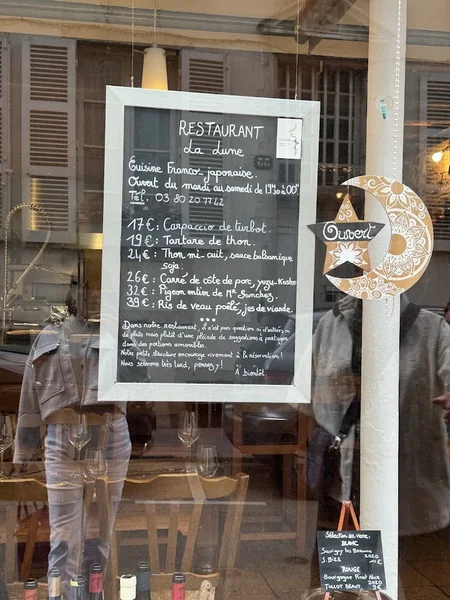 RESTAURANT
La Lune
Cuisine Franco-japonaise.
Ouvert du mardi au samedi de 19h30 à 00h
Tél. 03 80 20 77 42
17€: Carpaccio de turbot.
19€: Tartare de thon.
24€: Thon mi-cuit, sauce balsamique
soja.
26€: Carré de côte de porc, yuzu-kosho
32€: Pigeon entier de Mr Sanchez,
39€: Ris de veau poêlé, jus de viande.
Dans notre restaurant, il n'est pas question ni d'entrées ni
de plats mais plutôt d'une pléiade de suggestions à partager
dans des portions amovibles.
Notre petite structure encourage vivement à la réservation!
Nous servons très tard, pensez-y!
A bientôt.
Ouvert
Sélection du verre:
BLANC
Savigny les Beaune
J. BIZE 2020
ROUGE
Bourgogne Pinot Noir
2020